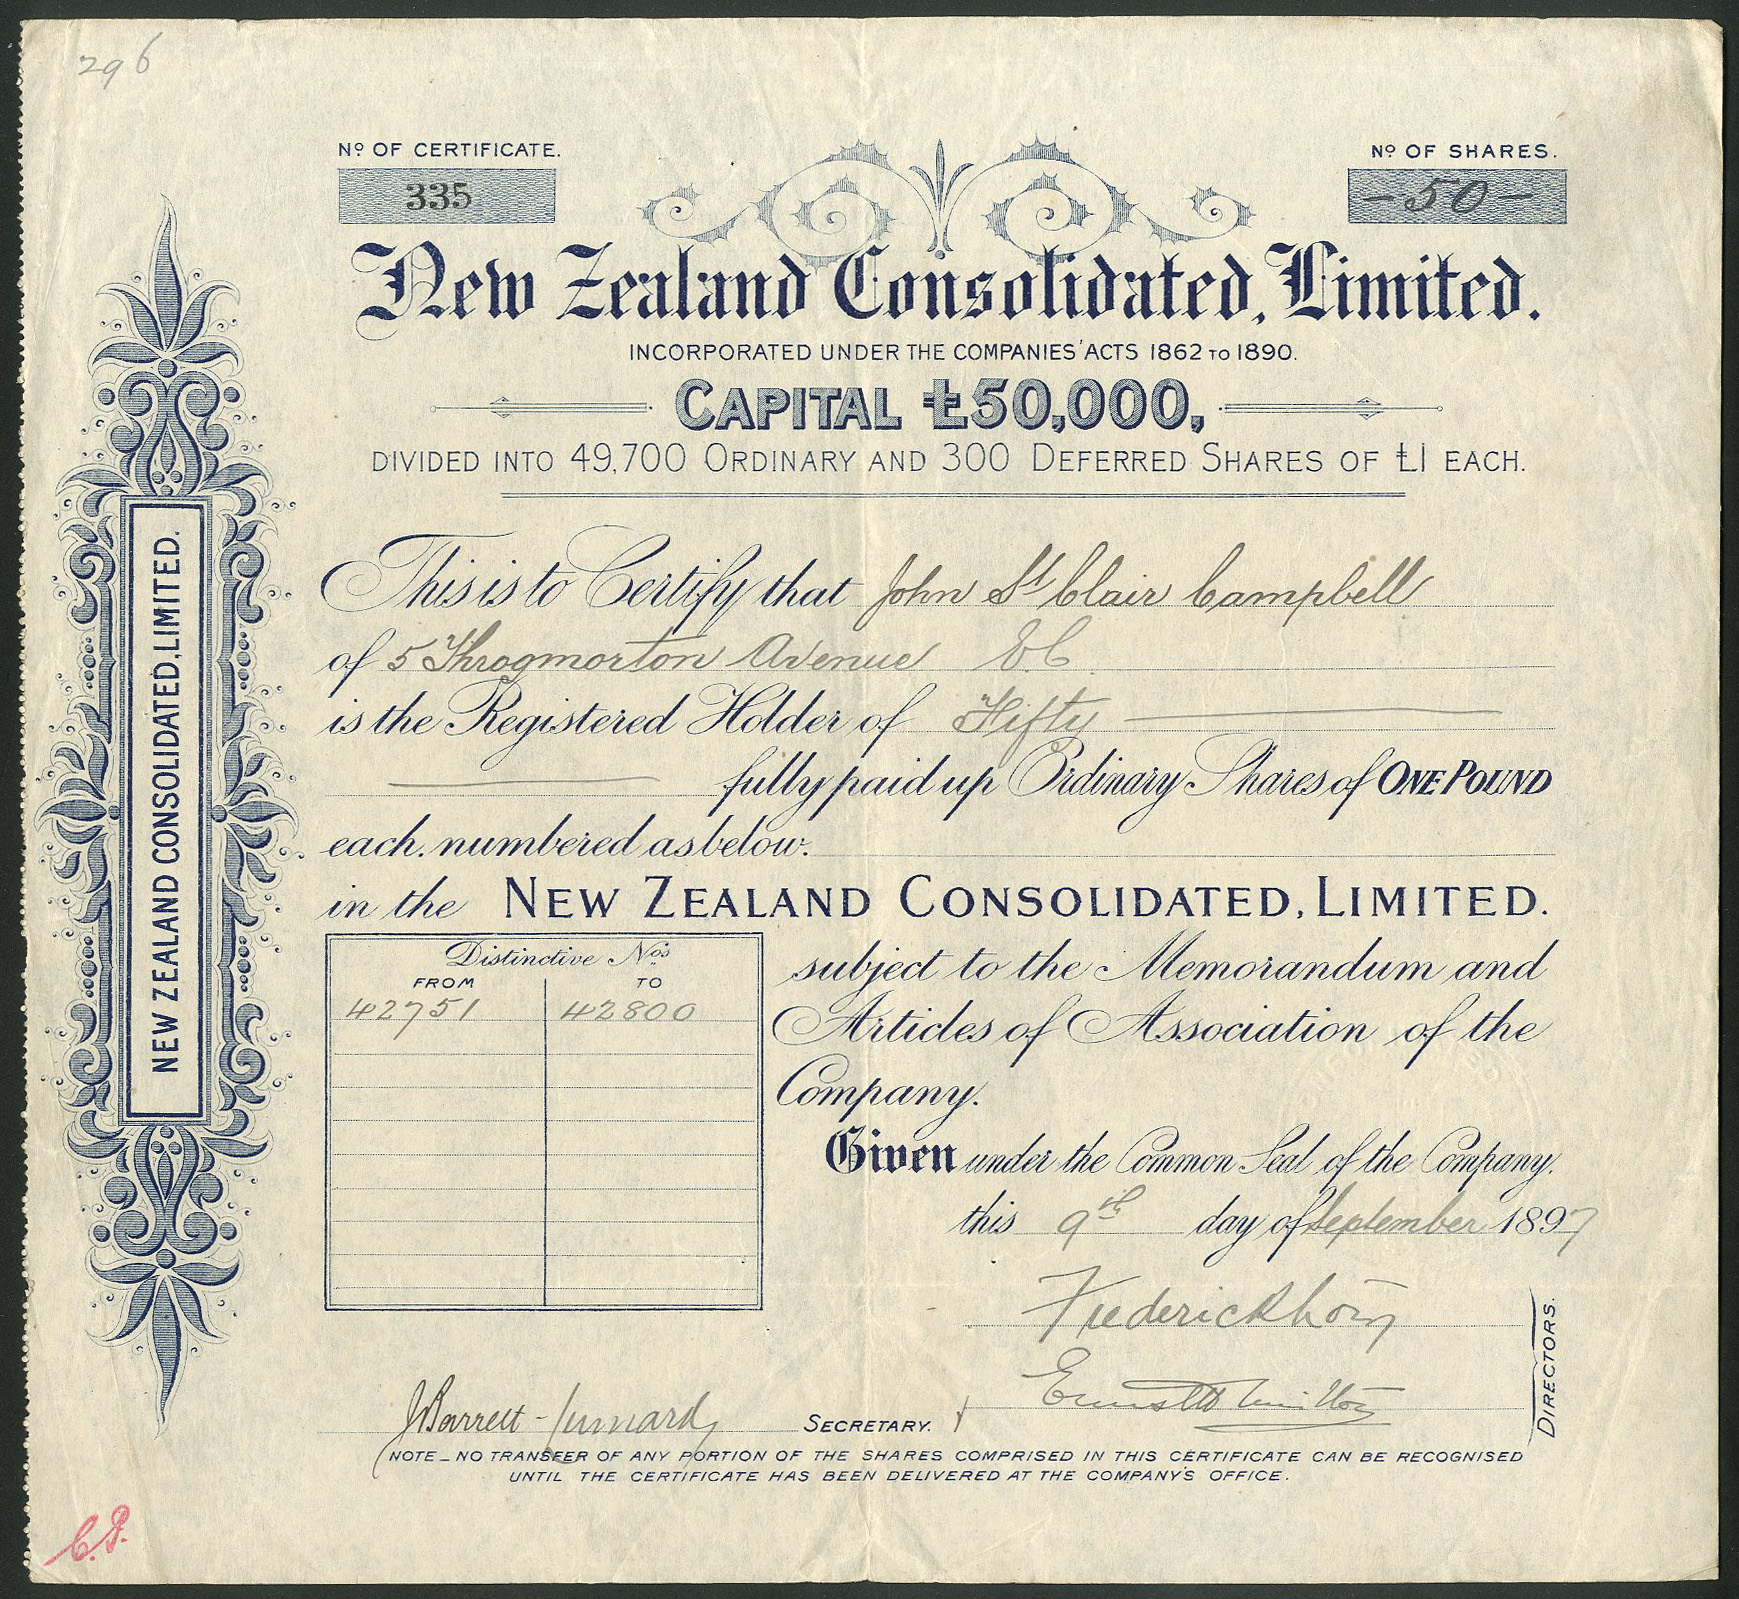 296
Nº OF CERTIFICATE.
335
Nº OF SHARES.
-50-
New Zealand Consolidated, Limited.
INCORPORATED UNDER THE COMPANIES' ACTS 1862 TO 1890.
CAPITAL £50,000,
DIVIDED INTO 49,700 ORDINARY AND 300 DEFERRED SHARES OF £1 EACH.
NEW ZEALAND CONSOLIDATED, LIMITED.
This is to Certify that John St Clair Campbell
of 5 Throgmorton Avenue E.C.
is the Registered Holder of Fifty
fully paid up Ordinary Shares of ONE POUND
each. numbered as below.
in the NEW ZEALAND CONSOLIDATED, LIMITED.
Distinctive Nos
FROM TO
42751 42800
subject to the Memorandum and
Articles of Association of the
Company.
Given under the Common Seal of the Company.
this 9th day of September 1897
Frederick
DIRECTORS.
J Barrett-Lennard SECRETARY.
NOTE_NO TRANSFER OF ANY PORTION OF THE SHARES COMPRISED IN THIS CERTIFICATE CAN BE RECOGNISED
UNTIL THE CERTIFICATE HAS BEEN DELIVERED AT THE COMPANY'S OFFICE.